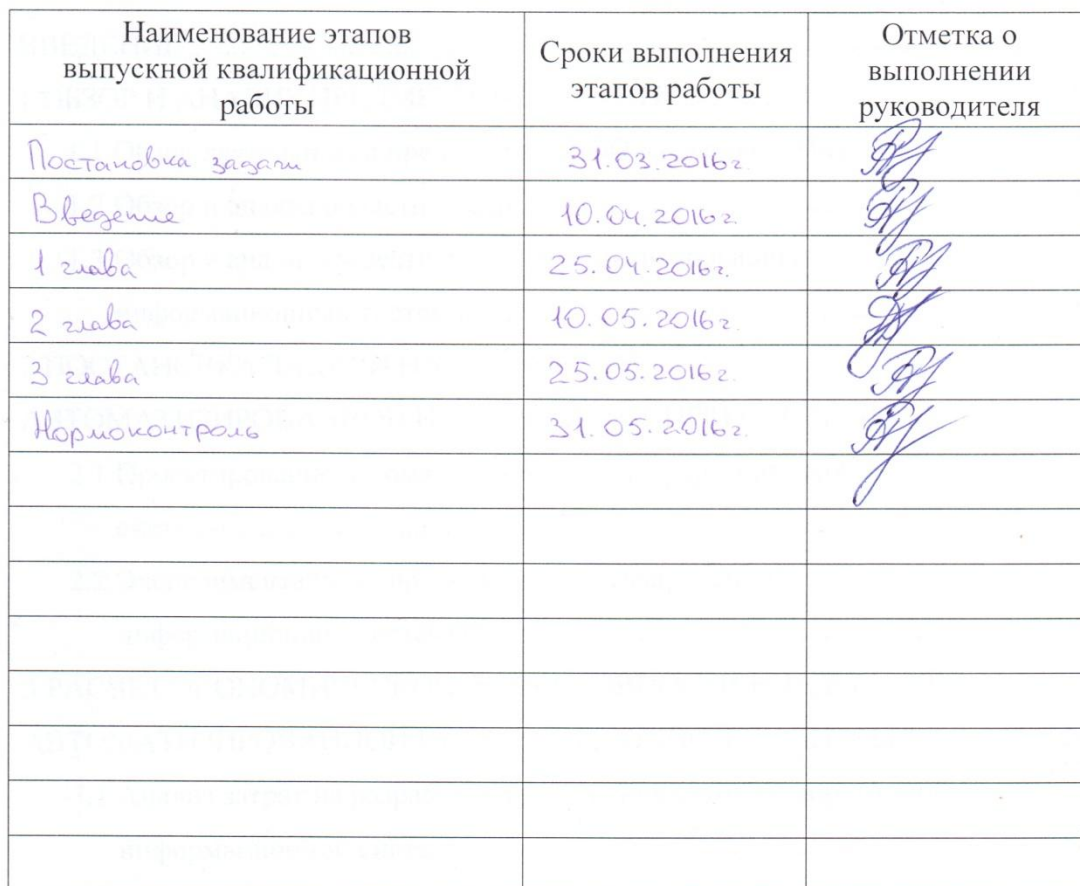 Наименование этапов
выпускной квалификационной
работы
Сроки выполнения
этапов работы
Отметка о
выполнении
руководителя
Постановка задачи 31.03.2016г.
Введение 10.04.2016г.
1 глава 25.04.2016г.
2 глава 10.05.2016г.
3 глава 25.05.2016г.
Нормоконтроль 31.05.2016г.